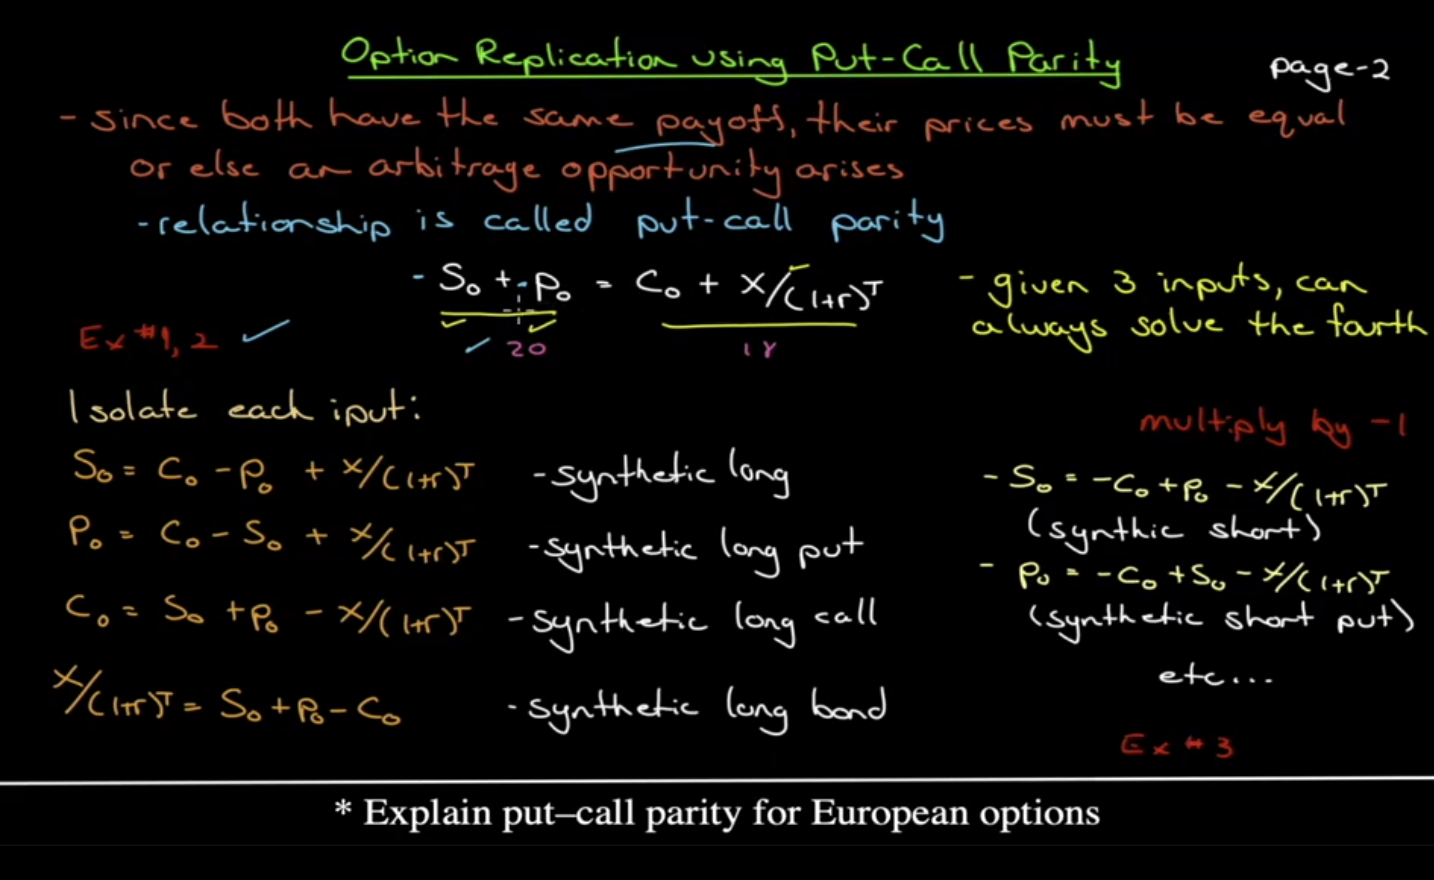 Option Replication using Put-Call Parity
page-2
- since both have the same payoff, their prices must be equal
or else an arbitrage opportunity arises
- relationship is called put-call parity
- S₀ + p₀ = C₀ + X/(1+r)ᵀ
20
18
- given 3 inputs, can
always solve the fourth
Ex #1, 2 ✓
Isolate each iput:
S₀ = C₀ - p₀ + X/(1+r)ᵀ - synthetic long
P₀ = C₀ - S₀ + X/(1+r)ᵀ - synthetic long put
C₀ = S₀ + p₀ - X/(1+r)ᵀ - synthetic long call
X/(1+r)ᵀ = S₀ + p₀ - C₀ - synthetic long bond
multiply by -1
- S₀ = -C₀ + p₀ - X/(1+r)ᵀ
(synthic short)
- p₀ = -C₀ + S₀ - X/(1+r)ᵀ
(synthetic short put)
etc...
Ex #3
* Explain put–call parity for European options